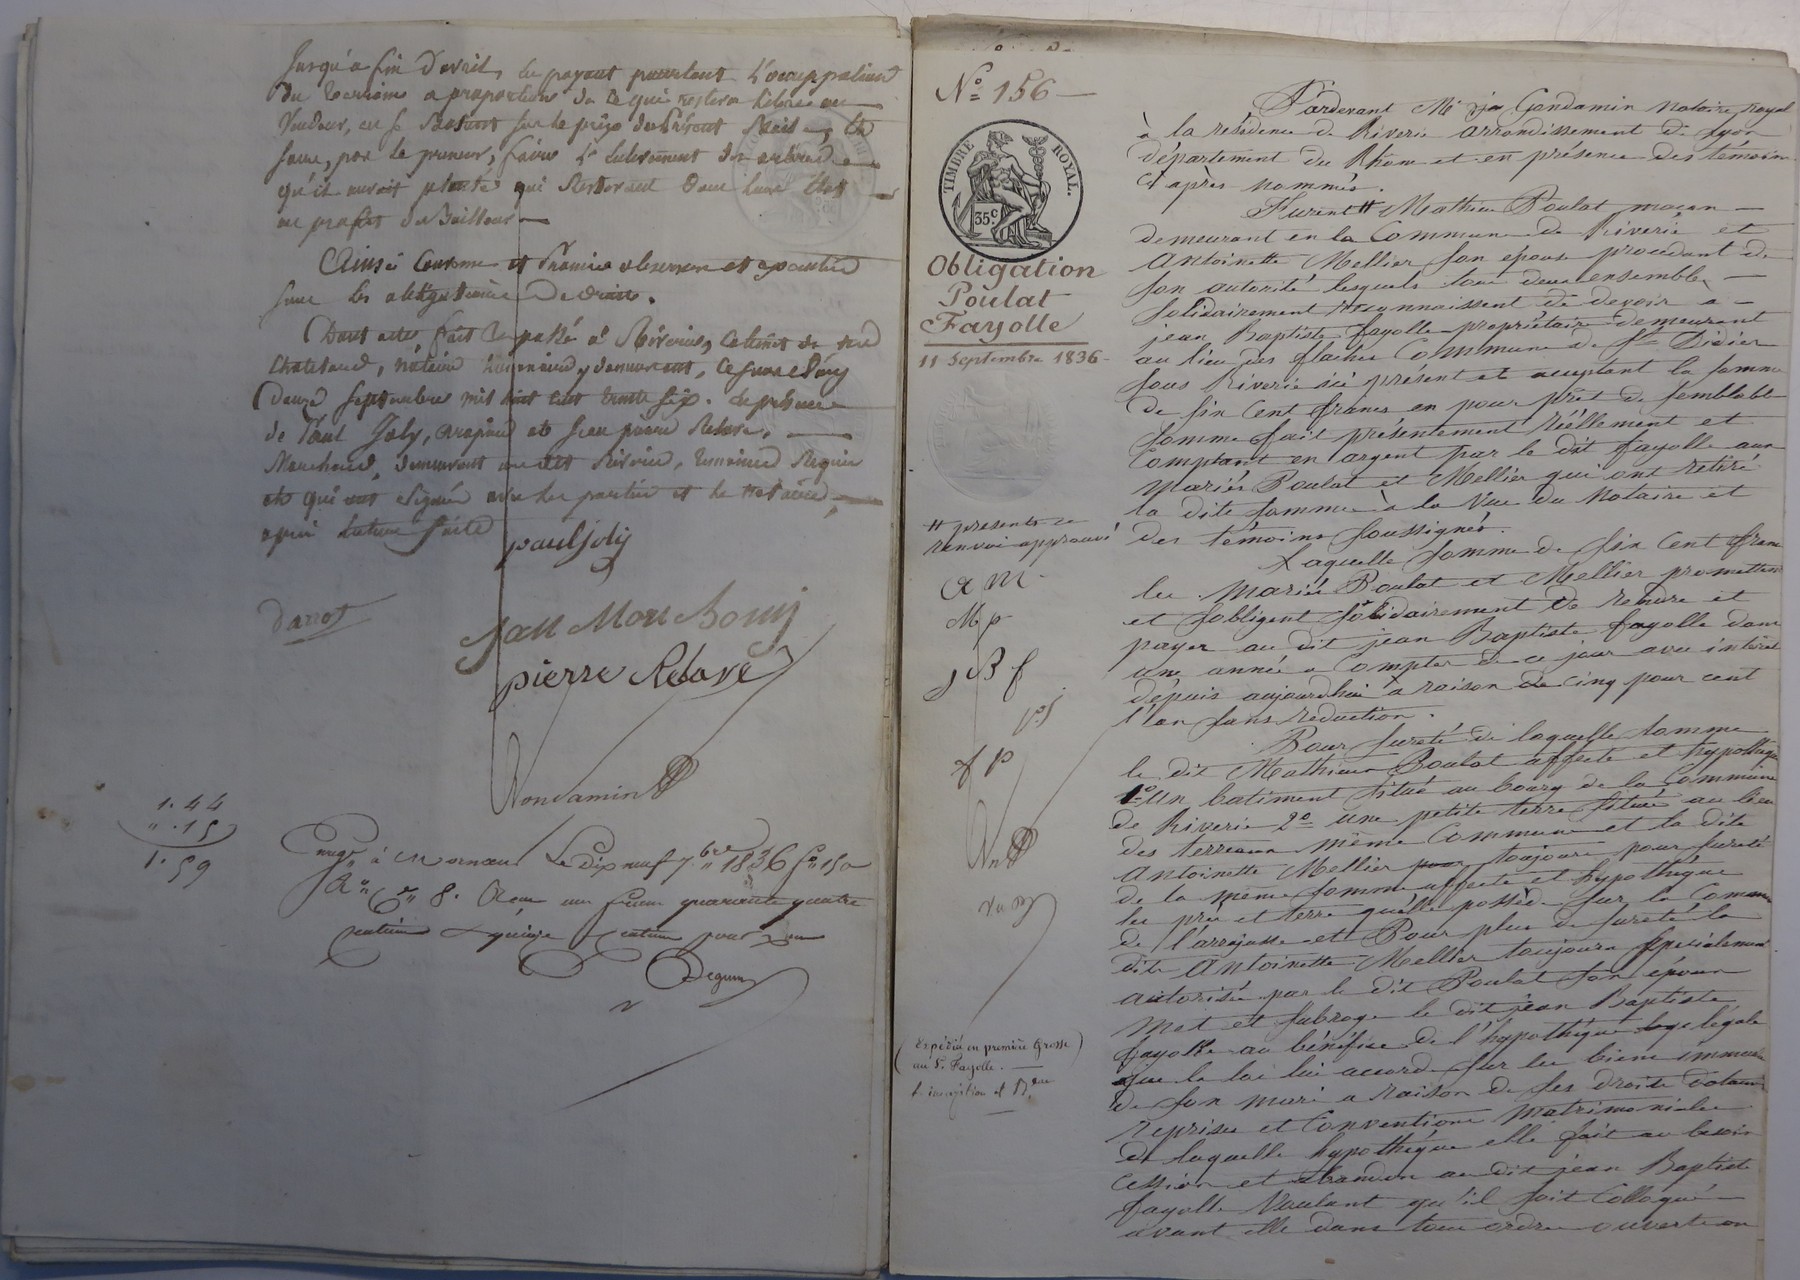 jusqu'a fin d'avril, en payant pourtant l'occuppation
du terrein a proportion de ce qui restera
vendeur, en se sur le prix du présent Bail
sans, par le preneur, faire l'enlevement des arbres
qu'il auroit planté qui resteront dans leur état
au profit du Bailleur
Ainsi convenu et Promis observer et exécuter
sous les obligations De droit.
Dont acte fait et passé à Riverie,
notaire demeurant,
Douze Septembre mil huit cent trente six. En présence
de Paul Joly, et Jean pierre Relave,
Marchand, demeurant audit Riverie, temoins Requis
et qui ont signés avec les parties et le notaire,
après lecture faite
paul joly
Darrot
pierre Relave
Condamin
1. 44
" . 15
1. 59
Enreg. à Mornant Le Dix neuf 7.bre 1836 f.o 150
R.o C.e 8. Reçu un franc quarante quatre
centimes quinze centimes pour
Deguin
N.o 156
TIMBRE ROYAL.
35c
Obligation
Poulat
Fayolle
11 Septembre 1836
# presents ce
renvoi approuvé
a m
M p
J B f
f p
(Expédié en première Grosse)
au S. Fayolle.
Pardevant M.e Condamin notaire royal
à la residence de Riverie arrondissement de Lyon
département du Rhône et en présence des témoins
ci après nommés.
Furent # Mathieu Poulat maçon
demeurant en la Commune de Riverie et
Antoinette Mellier son épouse procédant de
son autorité lesquels tous deux ensembles
solidairement reconnaissent de devoir a
jean Baptiste fayolle propriétaire demeurant
au lieu des flaches Commune de S.t Didier
sous Riverie ici présent et acceptant la somme
de six cent francs en pour prêt de semblable
somme fait présentement réellement et
Comptant en argent par le dit fayolle aux
mariés Poulat et Mellier qui ont retiré
la dite somme à la vue du Notaire et
des témoins soussignés.
Laquelle somme de six cent francs
les mariés Poulat et Mellier promettent
et s'obligent solidairement de rendre et
payer au dit jean Baptiste fayolle dans
une année a Compter de ce jour avec intérêt
depuis aujourdhui a raison de cinq pour cent
l'an sans réduction.
Pour sureté de laquelle somme
le dit Mathieu Poulat affecte et hypothèque
1.o Un batiment situé au bourg de la Commune
de Riverie 2.o une petite terre située au lieu
des terreaux même Commune et la dite
Antoinette Mellier toujours pour sureté
de la même somme affecte et hypothèque
les prés et terre qu'elle possède sur la Commune
de l'arrajasse et Pour plus de sureté la
dite Antoinette Mellier toujours spécialement
autorisée par le dit Poulat son époux
met et subroge le dit jean Baptiste
fayolle au bénéfice de l'hypothèque légale
que la loi lui accorde sur les biens immeubles
de son mari a raison de ses droits dotaux
reprises et Conventions matrimoniales
de laquelle hypothèque elle fait au besoin
Cession et abandon au dit jean Baptiste
fayolle Voulant qu'il soit Colloqué
avant elle dans tous ordre ouverts ou